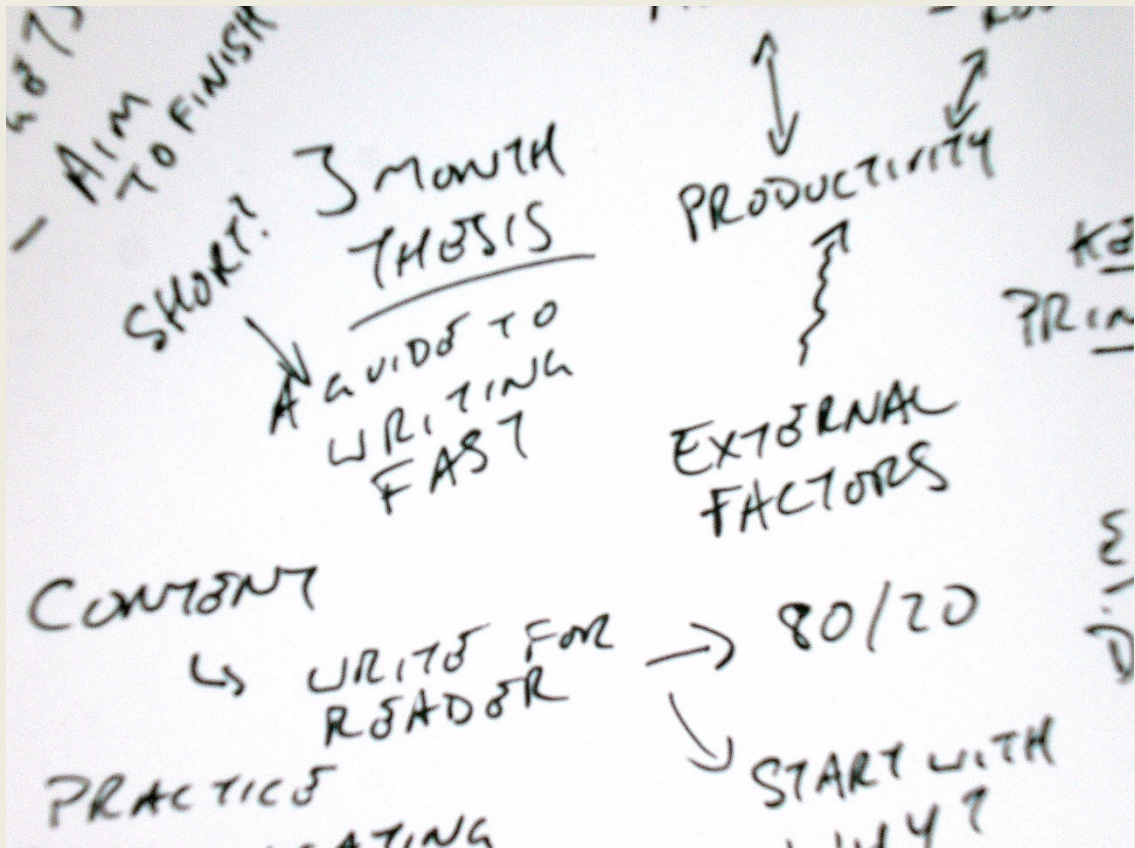 - AIM
TO FINISH
SHORT?
3 MONTH
THESIS
A GUIDE TO
WRITING
FAST
PRODUCTIVITY
EXTERNAL
FACTORS
CONTENT
WRITE FOR
READER
80/20
START WITH
WHY?
PRACTICE